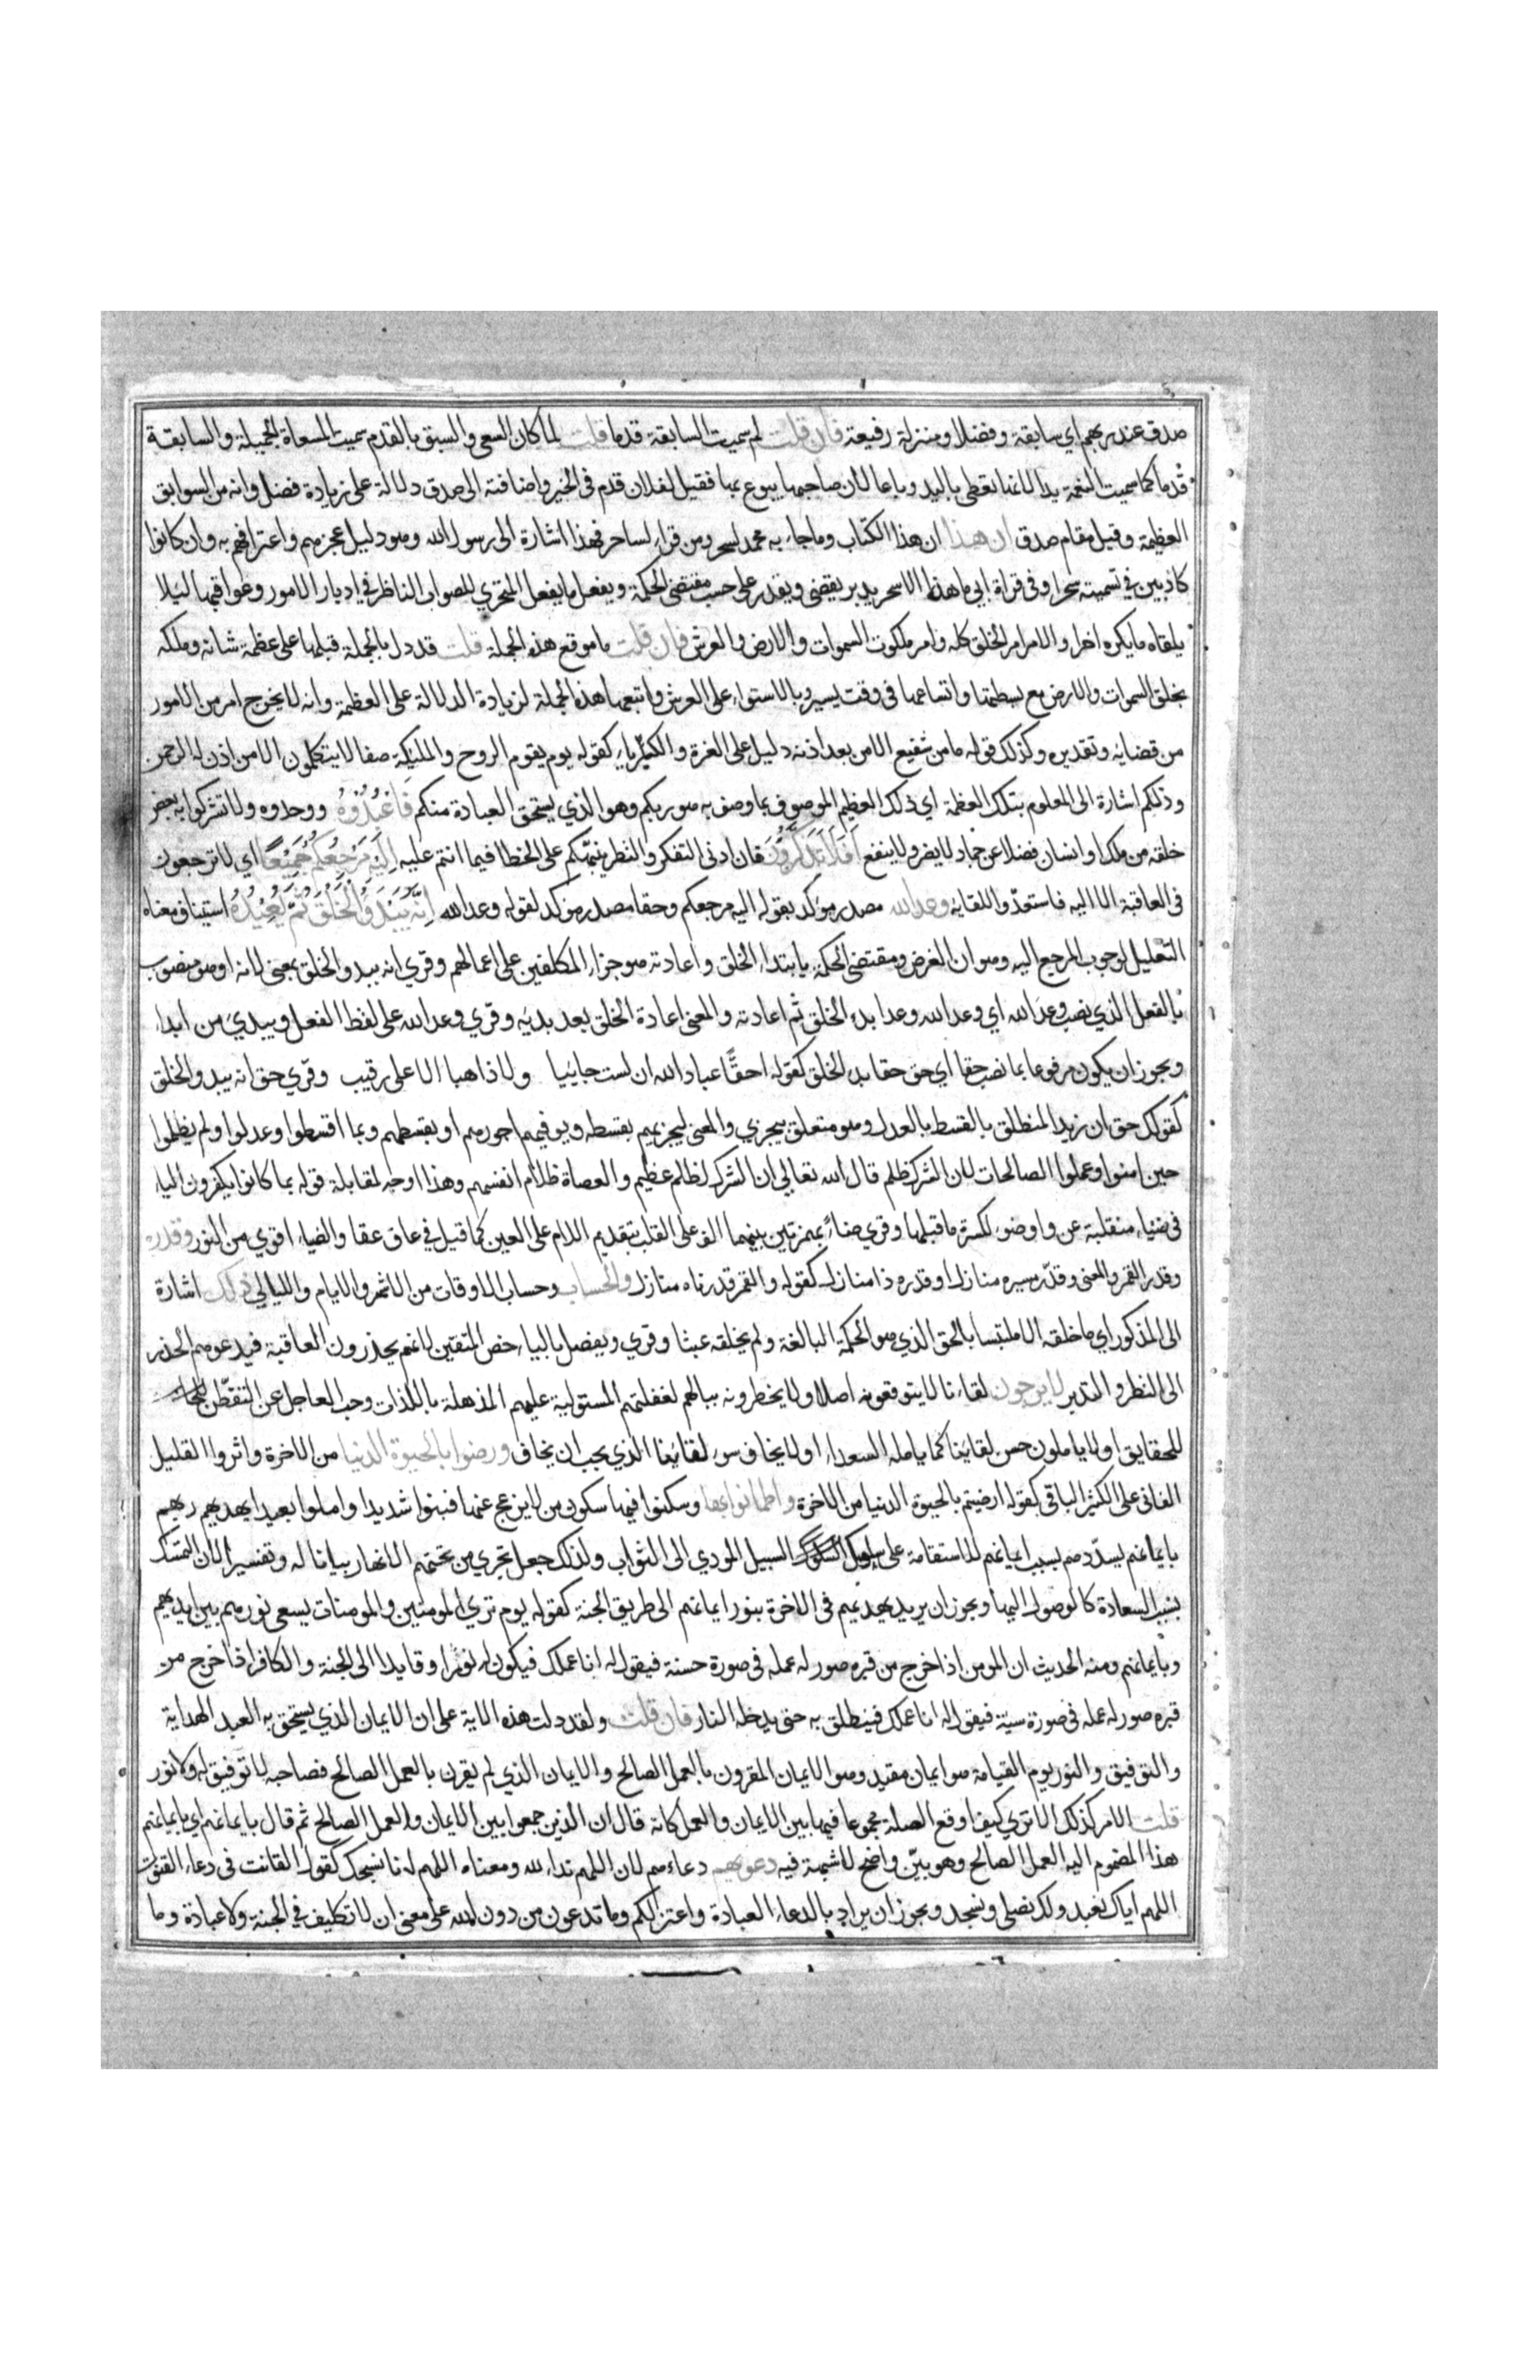 صدق عند ربهم اي سابقة وفضلا ومنزلة رفيعة فان قلت لم سميت السابقة قدما قلت لما كان السعي والسبق بالقدم سميت المسعاة الجميلة والسابقة
قدما كما سميت النعمة يدا لانها تعطى باليد وباعا لان صاحبها يبوع بها فقيل لفلان قدم في الخير واضافته الى صدق دلالة على زيادة فضل وانه من السوابق
العظيمة وقيل مقام صدق ان هذا ان هذا الكتاب وما جاء به محمد لسحر ومن قرا لساحر فهذا اشارة الى رسول الله وهو دليل عجزهم واعترافهم به وان كانوا
كاذبين في تسميته سحرا وفي قراة ابي ما هذا الا سحر يدبر يقضي ويقدر على حسب مقتضى الحكمة ويفعل ما يفعل المتحري للصواب الناظر في ادبار الامور وعواقبها ليلا
يلقاه ما يكره اخرا والامر امر الخلق كله وامر ملكوت السموات والارض والعرش فان قلت ما موقع هذه الجملة قلت قد دل بالجملة قبلها على عظمة شانه وملكه
بخلق السموات والارض مع بسطتها واتساعها في وقت يسير وبالاستواء على العرش واتبعها هذه الجملة لزيادة الدلالة على العظمة وانه لا يخرج امر من الامور
من قضايه وتقديره وكذلك قوله ما من شفيع الا من بعد اذنه دليل على العزة والكبرياء كقوله يوم يقوم الروح والمليكة صفا لا يتكلمون الا من اذن له الرحمن
وذلكم اشارة الى المعلوم بتلك العظمة اي ذلك العظيم الموصوف بما وصف به هو ربكم وهو الذي يستحق العبادة منكم فاعبدوه ووحدوه ولا تشركوا به بعض
خلقه من ملك او انسان فضلا عن جماد لا يضر ولا ينفع افلا تذكرون فان ادنى التفكر والنظر ينبهكم على الخطا فيما انتم عليه اليه مرجعكم جميعا اي لا ترجعون
في العاقبة الا اليه فاستعدوا للقايه وعد الله مصدر موكد بقوله اليه مرجعكم وحقا مصدر موكد لقوله وعد الله انه يبدؤ الخلق ثم يعيده استيناف معناه
التعليل لوجوب المرجع اليه وهو ان الغرض ومقتضى الحكمة بابتداء الخلق واعادته هو جزاء المكلفين على اعمالهم وقري انه يبدو الخلق بمعنى لانه او هو منصوب
بالفعل الذي نصب وعد الله اي وعد الله وعدا بدء الخلق ثم اعادته والمعنى اعادة الخلق بعد بديه وقري وعد الله على لفظ الفعل ويبدي من ابداء
ويجوز ان يكون مرفوعا بما نصب حقا اي حق حقا بدء الخلق كقوله احقا عباد الله ان لست جايئيا ولا ذاهبا الا على رقيب وقري حق انه يبدو الخلق
كقولك حق ان زيدا المنطلق بالقسط بالعدل وهو متعلق بيجزي والمعنى ليجزيهم بقسطه ويوفيهم اجورهم او بقسطهم وبما اقسطوا وعدلوا ولم يظلموا
حين امنوا وعملوا الصالحات لان الشرك ظلم قال الله تعالى ان الشرك لظلم عظيم والعصاة ظلام انفسهم وهذا اوجه لمقابلة قوله بما كانوا يكفرون الياء
في ضياء منقلبة عن واو ضوء لكسرة ما قبلها وقري ضئاء بهمزتين بينهما الف على القلب بتقديم اللام على العين كما قيل في عاق عقا والضياء اقوي من النور وقدره
وقدر القمر والمعنى وقدر مسيره منازل او قدره ذا منازل كقوله والقمر قدرناه منازل والحساب وحساب الاوقات من الاشهر والايام والليالي ذلك اشارة
الى المذكور اي ما خلقه الا ملتبسا بالحق الذي هو الحكمة البالغة ولم يخلقه عبثا وقري ويفصل بالياء خص المتقين لانهم يحذرون العاقبة فيدعوهم الحذر
الى النظر والتدبر لا يرجون لقاءنا لا يتوقعونه اصلا ولا يخطرونه ببالهم لغفلتهم المستولية عليهم المذهلة باللذات وحب العاجل عن التفطن
للحقايق او لا ياملون حسن لقاينا كما يامله السعداء او لا يخافون سوء لقاينا الذي يجب ان يخاف ورضوا بالحيوة الدنيا من الاخرة واثروا القليل
الفاني على الكثير الباقي كقوله ارضيتم بالحيوة الدنيا من الاخرة واطمانوا بها وسكنوا فيها سكون من لا يزعج عنها فبنوا شديدا واملوا بعيدا يهديهم ربهم
بايمانهم يسددهم بسبب ايمانهم للاستقامة على سلوك السبيل المودي الى الثواب ولذلك جعل تجري من تحتهم الانهار بيانا له وتفسيرا لان التمسك
بسبب السعادة كالوصول اليها ويجوز ان يريد يهديهم في الاخرة بنور ايمانهم الى طريق الجنة كقوله يوم تري المومنين والمومنات يسعى نورهم بين ايديهم
وبايمانهم ومنه الحديث ان المومن اذا خرج من قبره صور له عمله في صورة حسنة فيقول له انا عملك فيكون له نورا وقايدا الى الجنة والكافر اذا خرج من
قبره صور له عمله في صورة سيئة فيقول له انا عملك فينطلق به حتى يدخله النار فان قلت ولقد دلت هذه الاية على ان الايمان الذي يستحق به العبد الهداية
والتوفيق والنور يوم القيامة هو ايمان مقيد وهو الايمان المقرون بالعمل الصالح والايمان الذي لم يقرن بالعمل الصالح فصاحبه لا توفيق له ولا نور
قلت الامر كذلك الا تري كيف اوقع الصلة مجموعا فيها بين الايمان والعمل كانه قال ان الذين جمعوا بين الايمان والعمل الصالح ثم قال بايمانهم اي بايمانهم
هذا المضموم اليه العمل الصالح وهو بين واضح لا شبهة فيه دعويهم دعاءهم لان اللهم نداء لله ومعناه اللهم انا نسبحك كقول القانت في دعاء القنوت
اللهم اياك نعبد ولك نصلي ونسجد ويجوز ان يراد بالدعاء العبادة واعتزلكم وما تدعون من دون الله على معنى ان لا تكليف في الجنة ولا عبادة وما